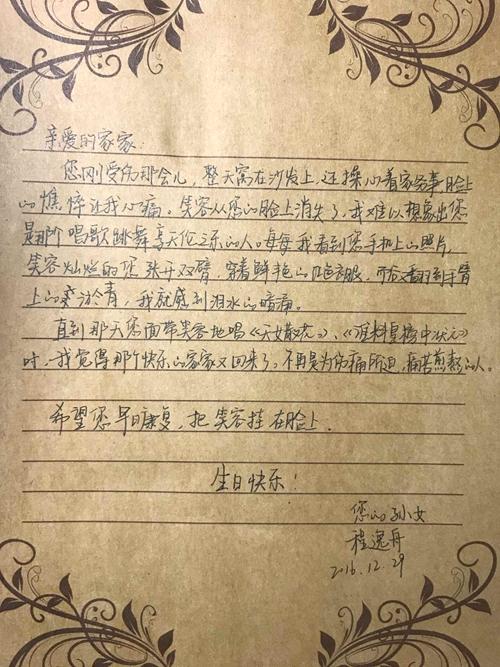 亲爱的家家:
您刚受伤那会儿，整天窝在沙发上，还操心着家务事，脸上
的憔悴让我心痛。笑容从您的脸上消失了，我难以想象出您
是那个唱歌跳舞享天伦之乐的人。每每我看到您手机上的照片，
笑容灿烂的您张开双臂，穿着鲜艳的衣服，而翻到手臂
上的淤青，我就感到泪水的暗痛。
直到那天您面带笑容地唱《天女散花》、《谁料皇榜中状元》
时，我觉得那个快乐的家家又回来了。不再是为伤痛所迫，痛苦煎熬的人。
希望您早日康复，把笑容挂在脸上.
生日快乐!
您的孙女
程逸舟
2016.12.29